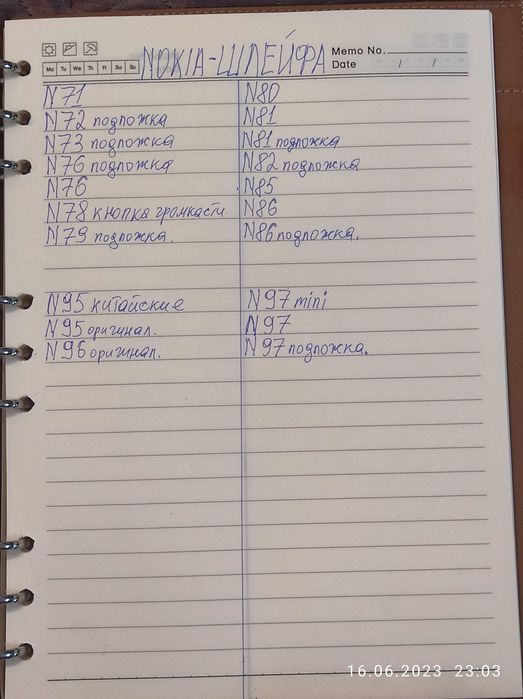 NOKIA-ШЛЕЙФА
Memo No.
Mo Tu We Th Fr Sa Su
Date / /
N71
N72 подложка
N73 подложка
N76 подложка
N76
N78 кнопка громкасти
N79 подложка.
N80
N81
N81 подложка
N82 подложка
N85
N86
N86 подложка.
N95 китайские
N95 оригинал.
N96 оригинал.
N97 mini
N97
N97 подложка.
16.06.2023 23:03